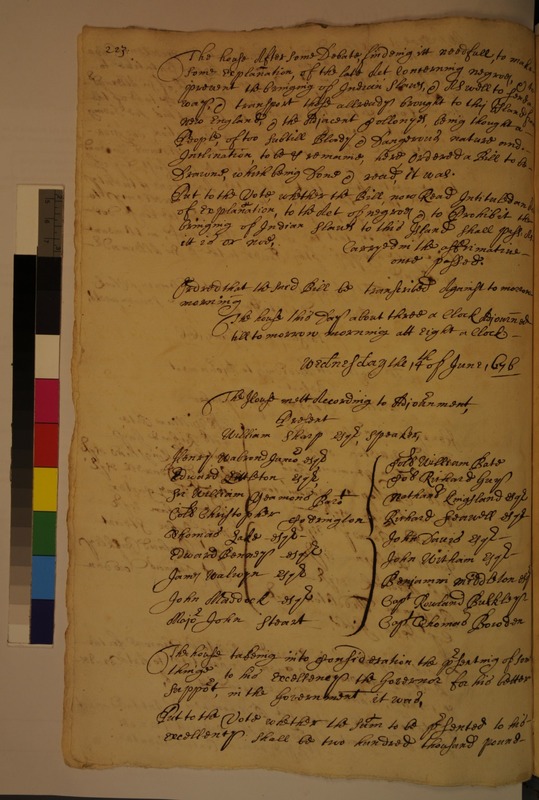 223
The house After some Debate, findeing itt needfull, to make
some explanation, of the late Act Concerning negroes, &
prevent the bringing of Indian Slaves, & As well to send
away & transport those allready brought to this Island from
new England & the Adjacent Collonyes, being thought a
People, of too subtill Bloody & Dangerous nature and
Inclination, to be & remaine, here Ordered a Bill to be
Drawne, which being Done & read, it was.
Put to the Vote, whether the Bill, now Read Intituled an
of explanation, to the Act of negroes, & to Prohibit the
bringing of Indian Slaves to this Island shall pass. As
itt is or noe,
Carryed in the affirmative—
once passed.
Ordred that the said Bill be transcribed Against to morrow
morning
The house this Day about three a Clock Adjourned
till to morrow morning att eight a Clock—
Wednesday the 14th of June, 1676
The House mett According to Adjornment,
Present
William Sharp esqr, Speaker,
Henry Walrond Junior esqr,
Edward Littleton esqr,
Sr William Yeamons Baro
Coll Christopher Codrington
Thomas Jake esqr
Edward Benney esqr
James Walwyn esqr
John Maddock esqr
Major John Steart
Coll William Bate
Coll Richard Guys
Nathanl Kingsland esqr
Richard Seawell esqr
John Davies esqr
John Witham esqr
Benjamin Middleton esqr
Capt Rowland Bulkley
Capt Thomas Bowden
The house takeing into Consideration the psenting of som
thinge to his excellencys the Governor for his better
Support in the Government it was,
Put to the Vote whether the Sum to be psented to his
excellency shall be two hundred thousand pound